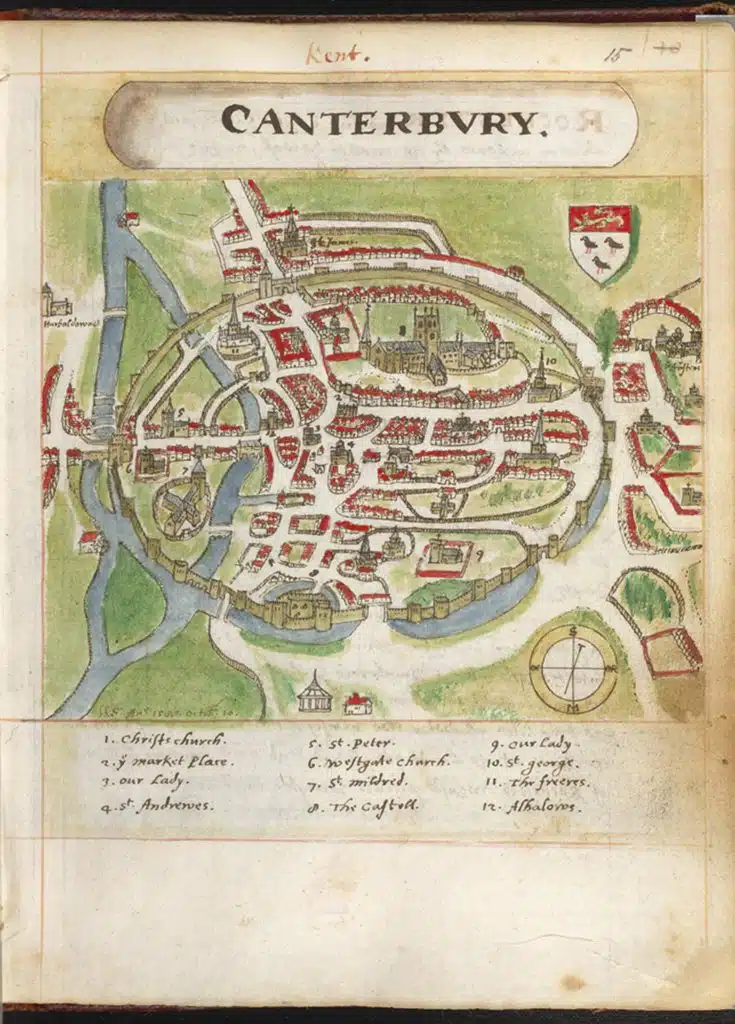 Kent.
15
CANTERBVRY.
St James.
Harbaldowne
10
5
12
6
7
9
S
M
1. Christs church.
2. ẏ market Place.
3. our Lady.
4. St. Andrewes.
5. St. Peter.
6. Westgate Church.
7. St. mildred.
8. The Castell.
9. Our Lady
10. St. george.
11. The freeres.
12. Alhalows.